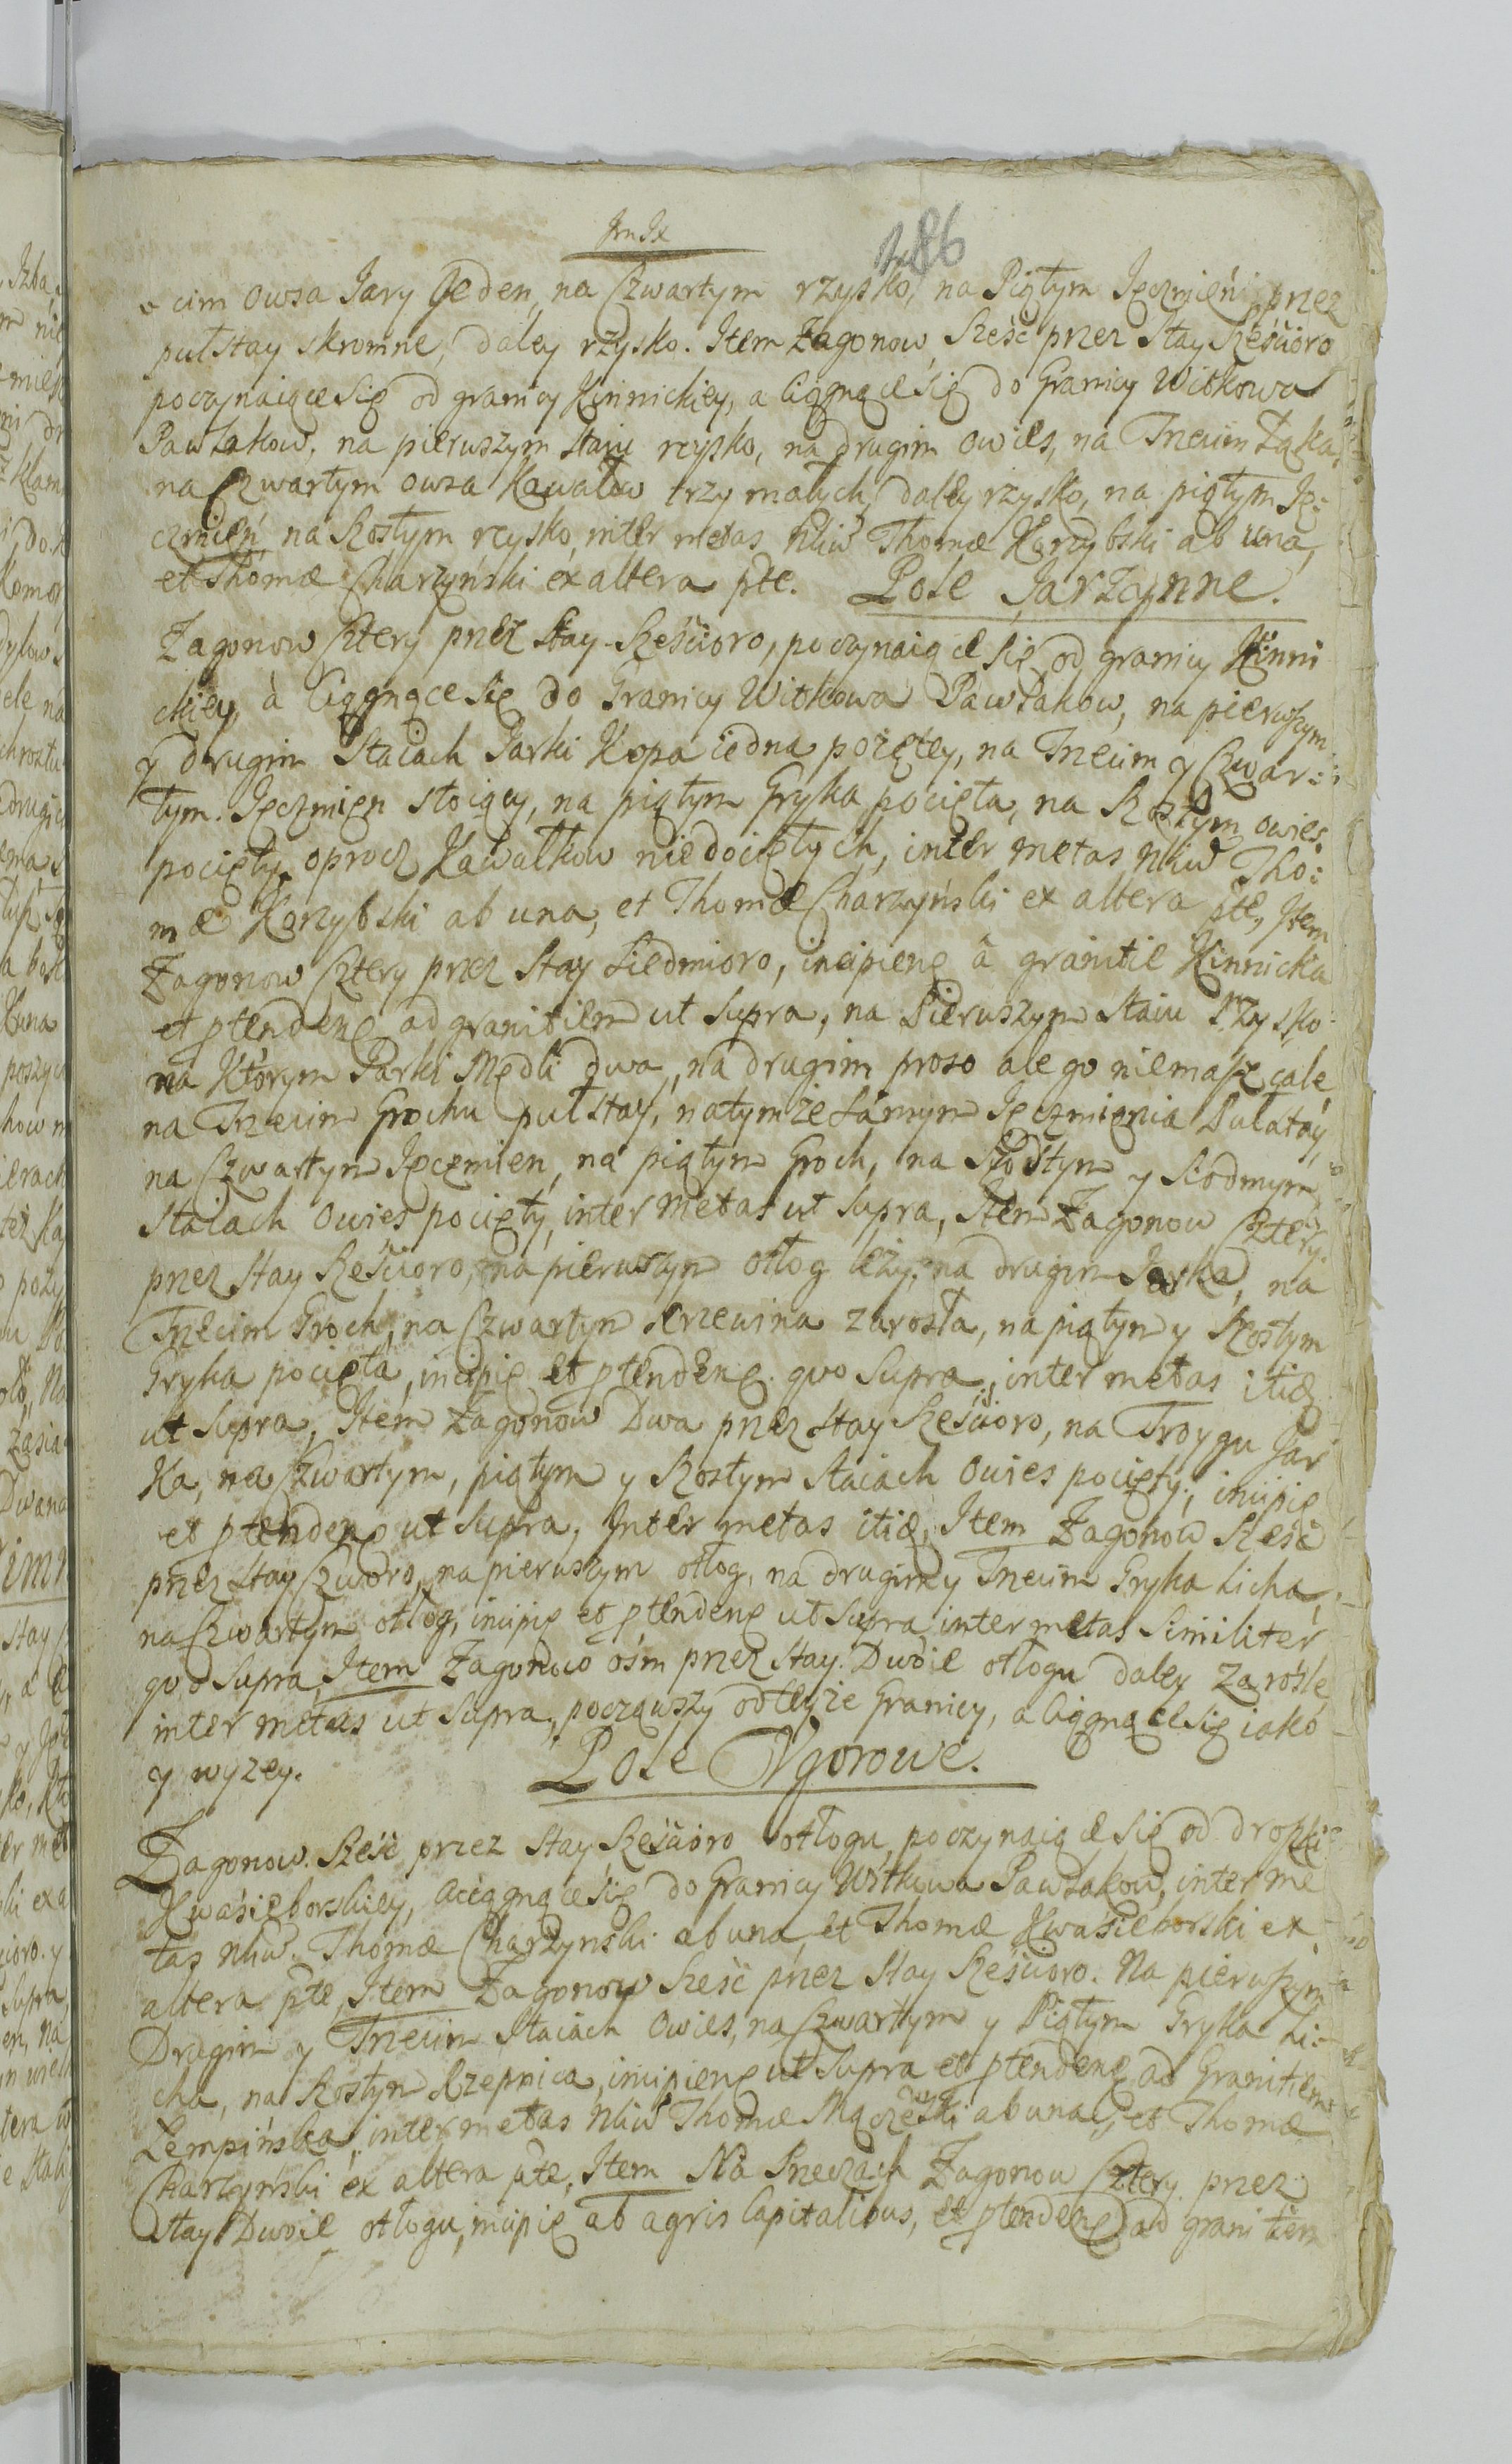 286
cim owsa Jary Jeden, na Czwartym rzysko, na Piątym Jęczmień, przez
puł stay skromne, daley rżysko. Item Zagonow Sześć przez Stay Sześcioro
poczynaiące się od granicy Kinnickiey, a ciągnące się do Granicy Witkowa
Pawłakow, na pierwszym staiu rżysko, na drugim owies, na Trzecim Łąka,
na Czwartym owsa Kawałow trzy małych, daley rzysko, na piątym Ję-
czmień, na Szostym rżysko, inter metas Nliũ Thomæ Karzybski ab una,
et Thomæ Charzyński ex altera pte. Pole Jarzynne.
Zagonow Cztery przez Stay Sześcioro, poczynaiące się od granicy Kinni
ckiey, à Ciągnące się do Granicy Witkowa Pawłakow, na pierwszym
y drugim Staiach Jarki Kopa iedna pożętey, na Trzecim y Czwar:
tym Jęczmien stoiący, na piątym Gryka pocięta, na Szostym owies
pocięty, oprocz Kawałkow niedociętych, inter metas Nliũ Tho:
mæ Karzybski ab una, et Thomæ Charzyński ex altera pte, Item
Zagonow Cztery przez Stay Siedmioro, incipienę à granitie Kinnicka
et ptendenę ad granitiem ut supra, na Pierwszym Staiu Rzysko
na Którym Jarki Mędli dwa, na drugim proso ale go niemasz cale,
na Trzecim Grochu puł stay, na tymże samym Jęczmienia
na Czwartym Jęczmien, na piątym Groch, na Szostym y Siodmym
Staiach Owies pocięty, inter metas ut supra, Item Zagonow Cztery
przez Stay Sześcioro, na pierwszym otłog leży, na drugim Jarka, na
Trzecim Groch, na Czwartym Krzewina zarosła, na piątym y Szostym
Gryka pocięta, incipię et ptendenę quo supra, inter metas itię
ut supra, Item Zagonow Dwa przez Stay Sześcioro, na Troygu Jar
Ka, na Czwartym, piątym y Szostym Staiach Owies pocięty, incipię
et ptendenę ut supra, Inter metas itię, Item Zagonow Sześć
przez Stay Czworo, na pierwszym otłog, na drugim y Trzecim Gryka Licha,
na Czwartym otłog, incipię et ptendenę ut supra inter metas Similiter
quo supra, Item Zagonow ośm przez Stay Dwoie otłogu daley zarośle
inter metas ut supra, począwszy od teyże Granicy, a ciągnące się iako
y wyzey. Pole Vgorowe.
Zagonow Sześć przez Stay Sześcioro otłogu, poczynaiące się od drożki
Kwasieborskiey, a ciągnące się do Granicy Witkowa Pawłakow, inter me
tas Nliũ. Thomæ Charzynski ab una, et Thomæ Kwasieborski ex
altera pte, Item Zagonow Sześć przez Stay Sześcioro. Na pierwszym
Drugim y Trzecim Staiach Owies, na Czwartym y Piątym Gryka Li:
cha, na Szostym Rzepnica, incipienę ut supra et ptendenę ad Granitiem
Lempińska, inter metas Nliũ Thomæ ab una, et Thomæ
Charzyński ex altera pte, Item Na Zagonow Cztery przez
Stay Dwoie otłogu, incipię ab agris Capitalibus, et ptendenę ad granitiem